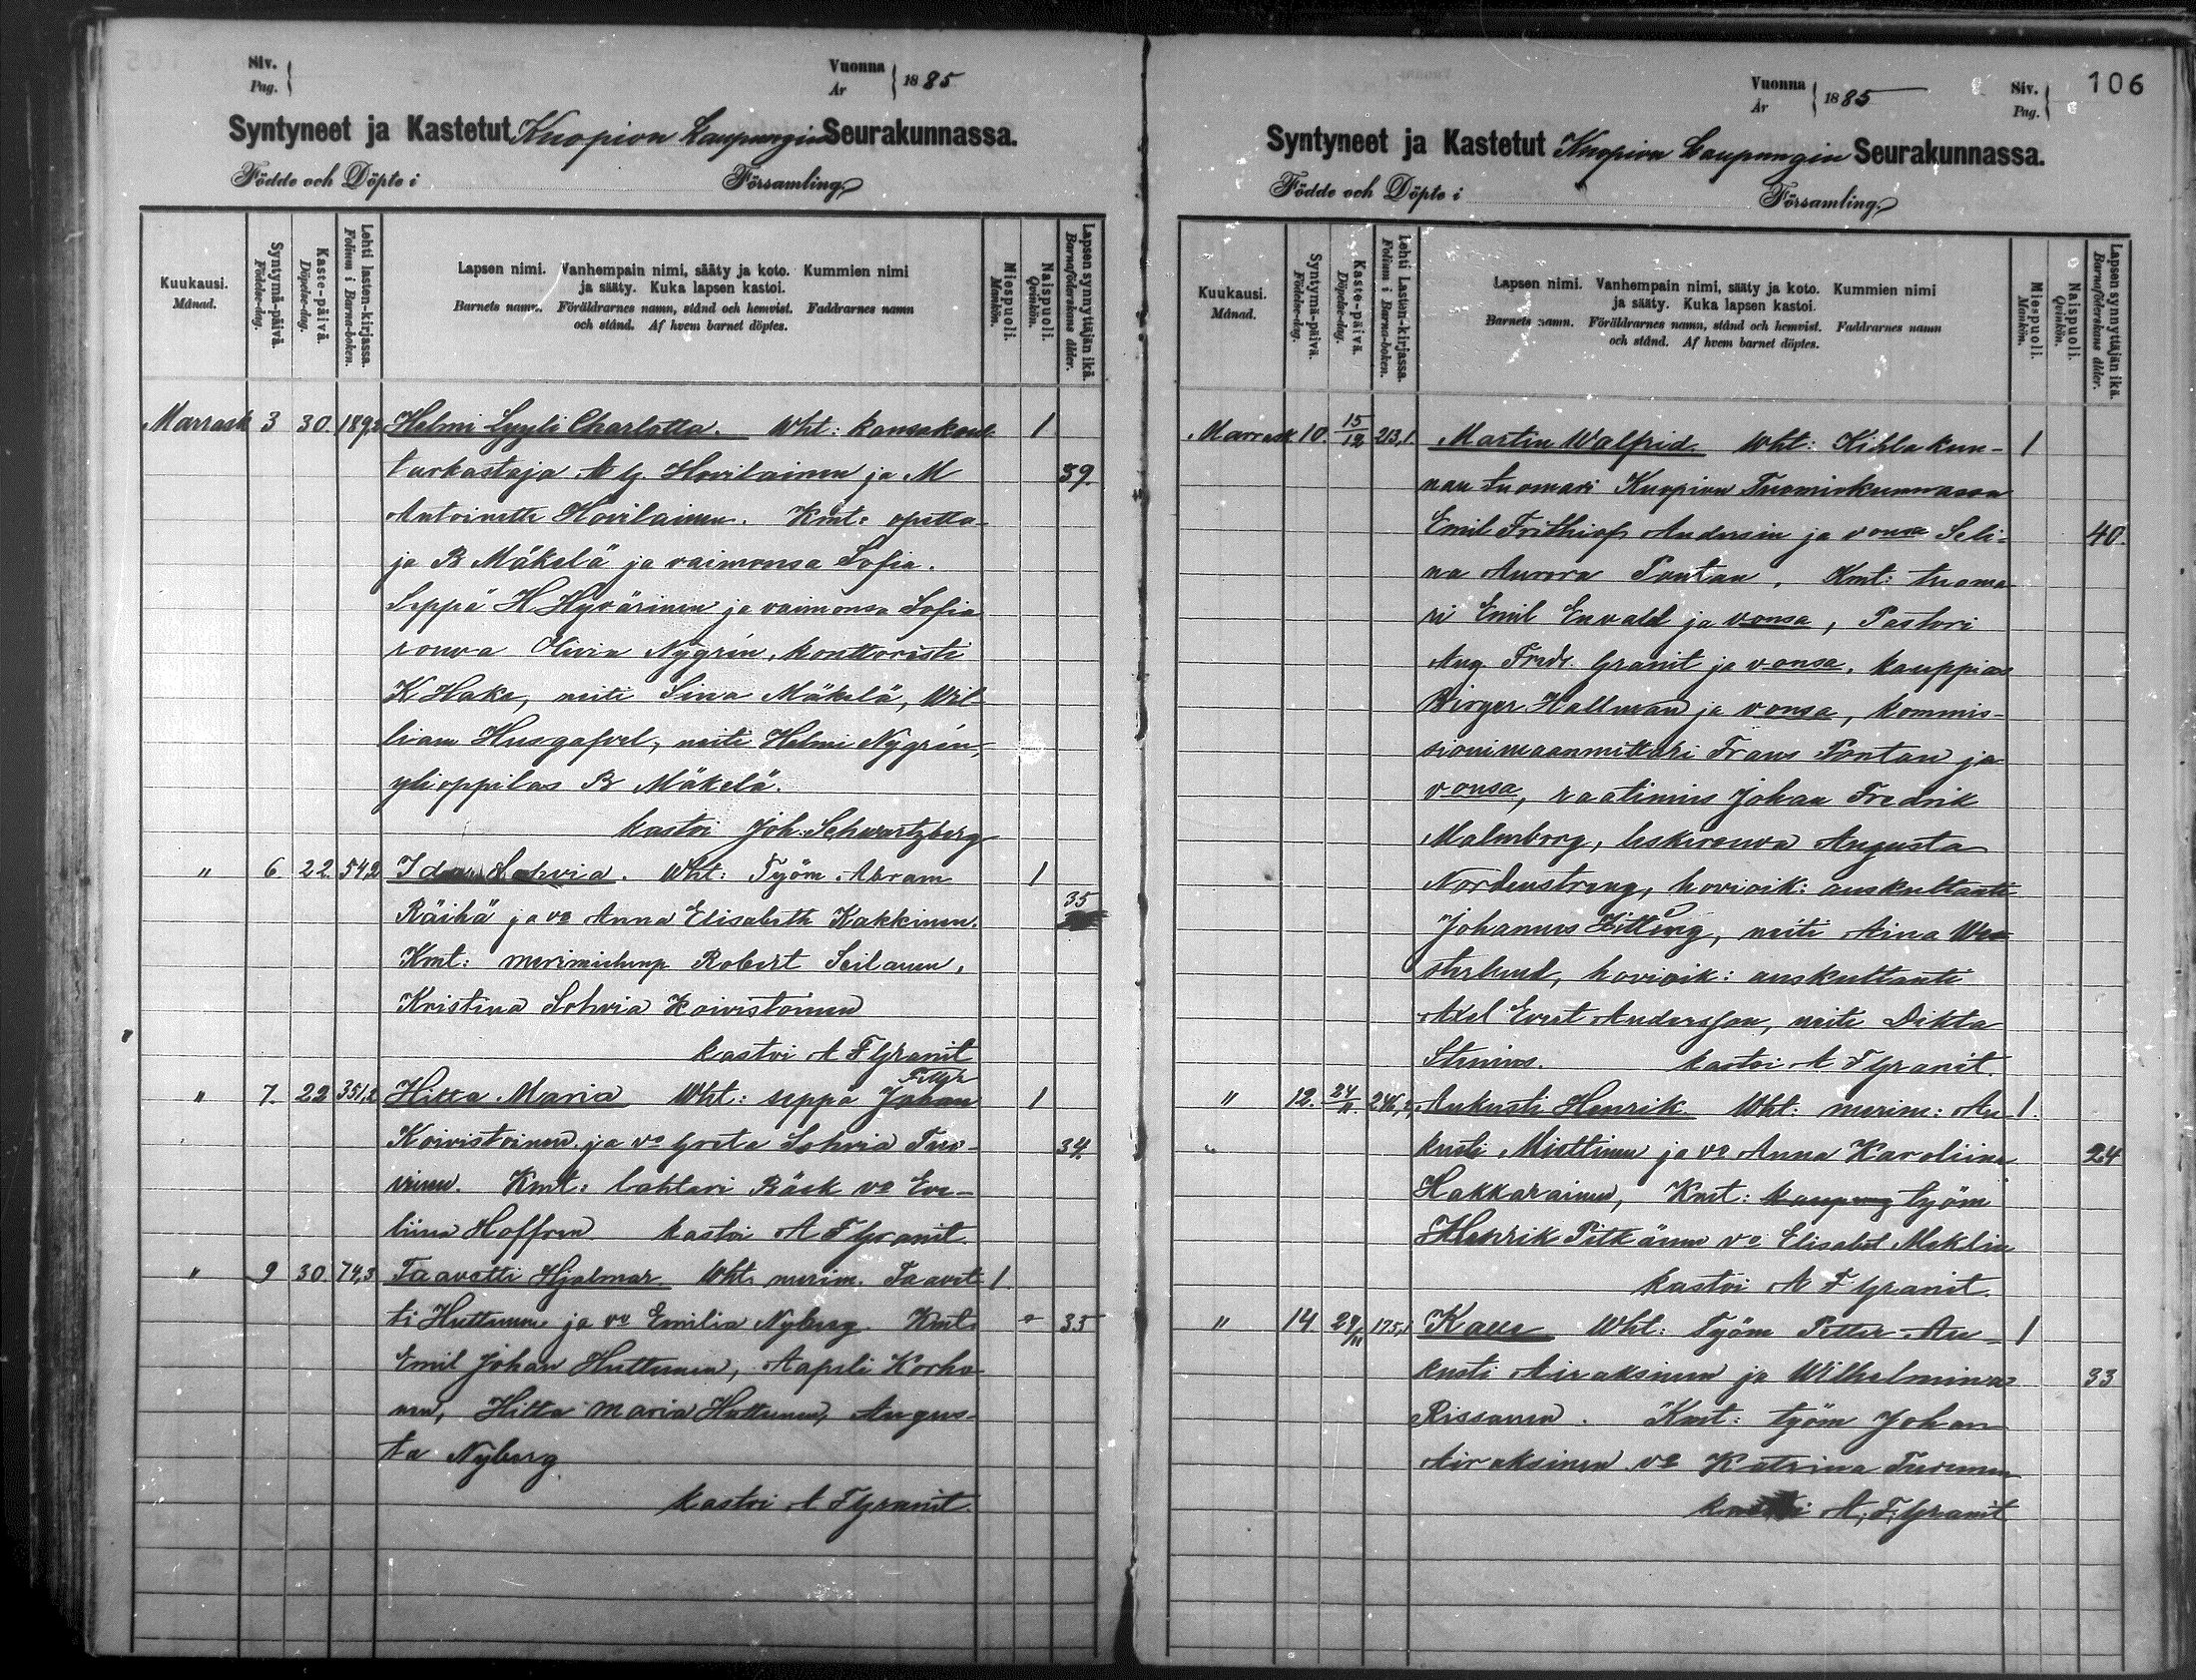 Siv.
Pag.
Vuonna
År
1885
Syntyneet ja Kastetut Kuopion Kaupungin Seurakunnassa.
Födde och Döpte i Församling
Kuukausi.
Månad.
Syntymä-päivä.
Födelse-dag.
Kaste-päivä.
Döpelse-dag.
Lehti lasten-kirjassa.
Folium i Barna-boken.
Lapsen nimi. Vanhempain nimi, sääty ja koto. Kummien nimi
ja sääty. Kuka lapsen kastoi.
Barnets namn. Föräldrarnes namn, stånd och hemvist. Faddrarnes namn
och stånd. Af hvem barnet döptes.
Miespuoli.
Mankön.
Naispuoli.
Qvinkön.
Lapsen synnyttäjän ikä.
Barnaföderskans ålder.
Marrask 3 30. 189,2 Helmi Lyyli Charlotta. Wht: kansakoul. 1
tarkastaja A G. Hovilainen ja M 39.
Antoinette Hovilainen. Kmt: opetta-
ja B Mäkelä ja vaimonsa Sofia.
Seppä H Hyvärinen ja vaimonsa Sofia
rouva Olivia Nygrén, konttoristi
K Hake, neiti Sina Mäkelä, Wil-
liam Husgafvel, neiti Helmi Nygrén,
ylioppilas B Mäkelä.
kastoi Joh. Schwartzberg
" 6. 22. 54,2 Ida Sohvia. Wht: Työm. Abram 1
Räihä ja vo Anna Elisabeth Kakkinen. 35
Kmt: merimiehenp Robert Seilanen,
Kristina Sohvia Koivistoinen
kastoi A F Granit
" 7. 22 351,2 Hilta Maria Wht: seppä Johan 1
Koivistoinen ja vo Greta Sohvia Tuo- 34.
vinen. Kmt: lahtari Bäck vo Eve-
liina Hoffren kastoi A F Granit.
" 9 30. 74,3 Taavetti Hjalmar. Wht: merim. Taavet- 1.
ti Huttunen ja vo Emilia Nyberg. Kmt: 35
Emil Johan Huttunen, Aapeli Korho-
nen, Hilta Maria Huttunen, Augus-
ta Nyberg
kastoi A F Granit.
Vuonna
År
1885
Siv.
Pag.
106
Syntyneet ja Kastetut Kuopion Kaupungin Seurakunnassa.
Födde och Döpte i Församling
Kuukausi.
Månad.
Syntymä-päivä.
Födelse-dag.
Kaste-päivä.
Döpelse-dag.
Lehti Lasten-kirjassa.
Folium i Barna-boken.
Lapsen nimi. Vanhempain nimi, sääty ja koto. Kummien nimi
ja sääty. Kuka lapsen kastoi.
Barnets namn. Föräldrarnes namn, stånd och hemvist. Faddrarnes namn
och stånd. Af hvem barnet döptes.
Miespuoli.
Mankön.
Naispuoli.
Qvinkön.
Lapsen synnyttäjän ikä.
Barnaföderskans ålder.
Marrask 10. 15/12 213,1 Martin Walfrid. Wht: Kihlakun- 1
nan tuomari Kuopion Tuomiokunnassa
Emil Frithiof Andersin ja vonsa Seli- 40.
na Aurora Pontan. Kmt: tuoma
ri Emil Envald ja vonsa, Pastori
Aug. Fredr. Granit ja vonsa, kauppias
Birger Hallman ja vonsa, kommis-
sionimaanmittari Frans Pontan ja
vonsa, raatimies Johan Fredrik
Malmborg, leskirouva Augusta
Nordenstreng, hovioik: auskultanti
Johannes Zitting, neiti Aina We-
sterlund, hovioik: auskultanti
Axel Evert Andersson, neiti Dikta
Stenius. kastoi A F Granit.
" 12. 24/11. 246,2 Aukusti Henrik. Wht: merim: Au 1.
kusti Miettinen ja vo Anna Karoliina 24
Hakkarainen, Kmt: kaupung työm
Henrik Pitkänen vo Elisabet Meklin
kastoi A F Granit.
" 14 29/11 175,1 Kalle Wht: Työm Petter Au- 1
kusti Airaksinen ja Wilhelmina 33
Rissanen. Kmt: työm Johan
Airaksinen vo Katrina Turunen
kastoi A. F. Granit